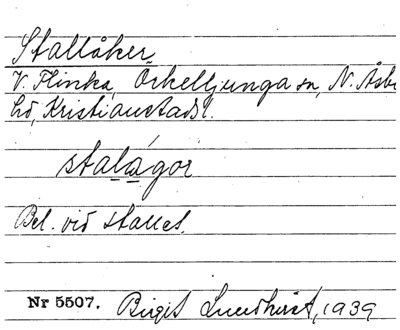 Stallåker
V. Flinka, Örkelljunga sn, N. Åsbo
hd, Kristianstads l.
stalágor
Bel. vid stallet.
Nr 5507. Birgit Lundkvist, 1939